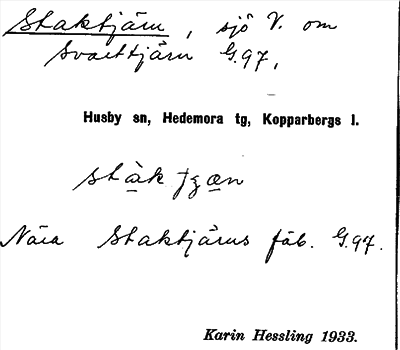 Staktjärn, sjö V. om
Svarttjärn G.97,
Husby sn, Hedemora tg, Kopparbergs l.
Nära Staktjärns fäb. G.97.
Karin Hessling 1933.